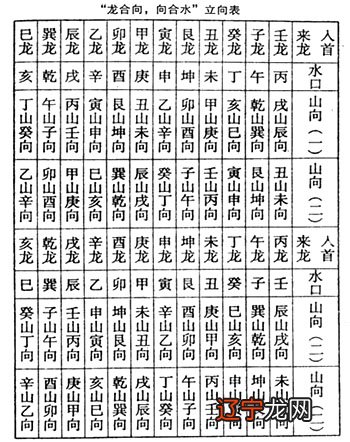 “龙合向，向合水”立向表
人首来龙 壬龙 子龙 癸龙 丑龙 艮龙 寅龙 甲龙 卯龙 乙龙 辰龙 巽龙 巳龙
水口 丙 午 丁 未 坤 申 庚 酉 辛 戌 乾 亥
山向（一） 戌山辰向 乾山巽向 亥山巳向 甲山庚向 卯山酉向 乙山辛向 丑山未向 艮山坤向 寅山申向 丙山壬向 午山子向 丁山癸向
山向（二） 丑山未向 艮山坤向 寅山申向 壬山丙向 子山午向 癸山丁向 辰山戌向 巽山乾向 巳山亥向 甲山庚向 卯山酉向 乙山辛向
人首来龙 丙龙 午龙 丁龙 未龙 坤龙 申龙 庚龙 酉龙 辛龙 戌龙 乾龙 亥龙
水口 壬 子 癸 丑 艮 寅 甲 卯 乙 辰 巽 巳
山向（一） 辰山戌向 巽山乾向 巳山亥向 庚山甲向 酉山卯向 辛山乙向 未山丑向 坤山艮向 申山寅向 壬山丙向 子山午向 癸山丁向
山向 未山 坤山 申山 丙山壬向 午山子向 丁山癸向 戌山辰向 乾山巽向 亥山巳向 庚山甲向 酉山卯向 辛山乙向
辽宁龙网